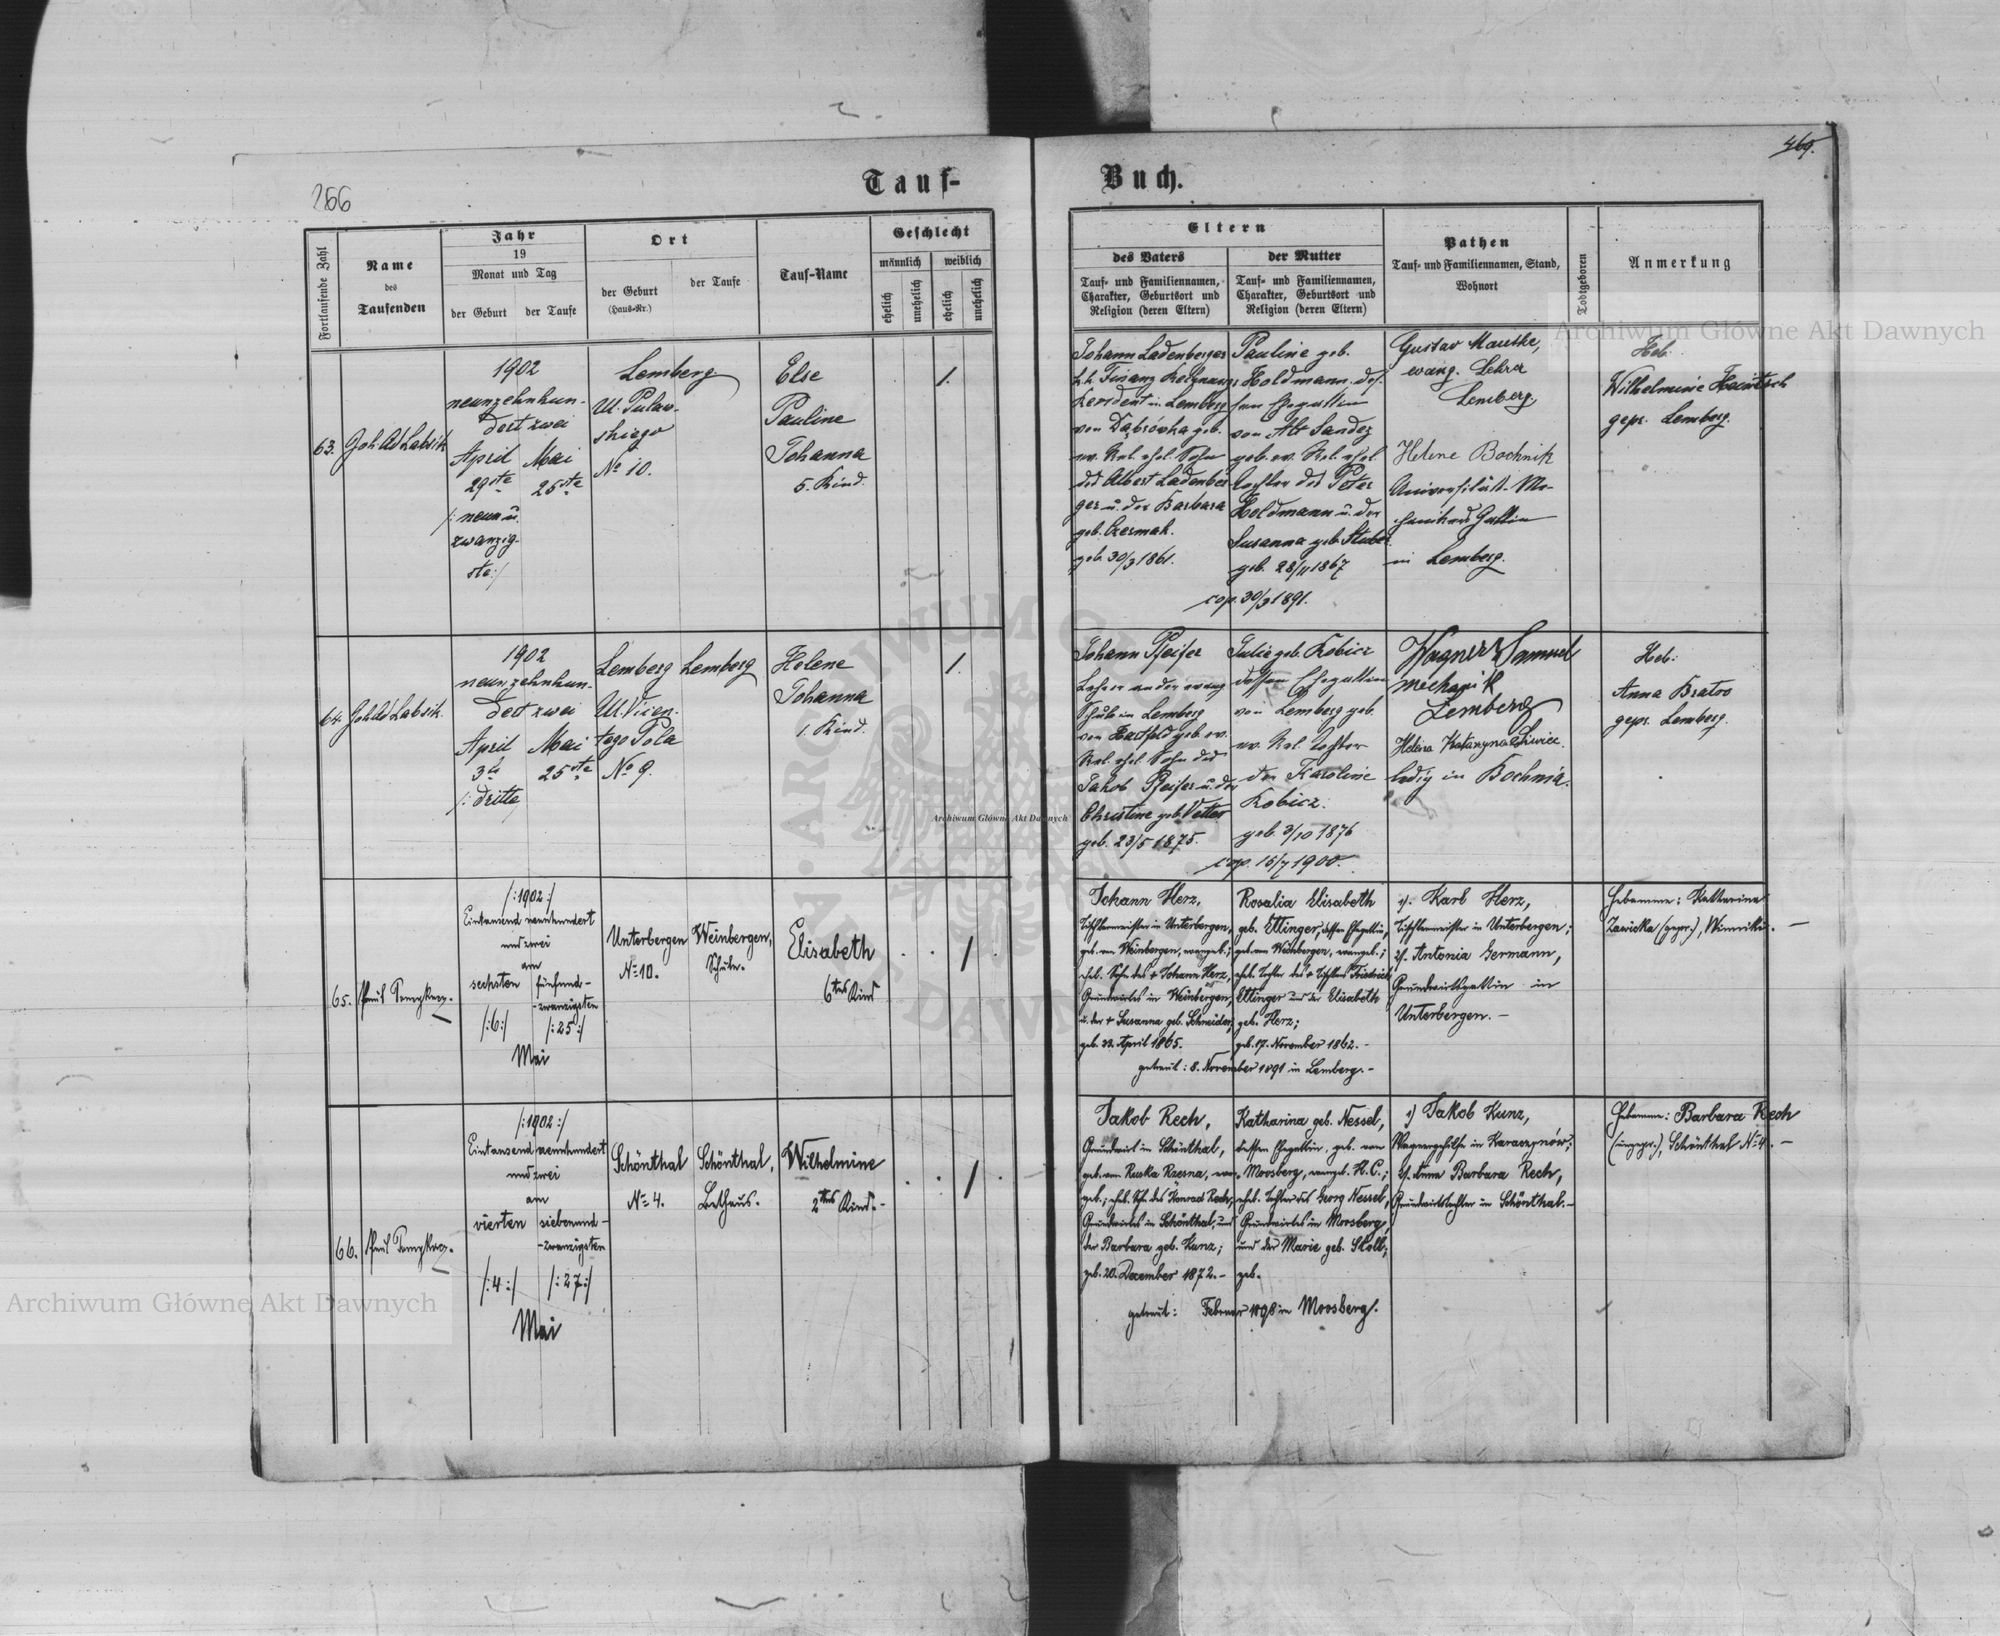 266
469.
Tauf-
Buch.
Fortlaufende Zahl
Name
des
Taufenden
Jahr
19
Monat und Tag
der Geburt
der Taufe
Ort
der Geburt
(Haus-Nr.)
der Taufe
Tauf-Name
Geschlecht
männlich
weiblich
ehelich
unehelich
ehelich
unehelich
Eltern
des Vaters
Tauf- und Familiennamen,
Charakter, Geburtsort und
Religion (deren Eltern)
der Mutter
Tauf- und Familiennamen,
Charakter, Geburtsort und
Religion (deren Eltern)
Pathen
Tauf- und Familiennamen, Stand,
Wohnort
Todtgeboren
Anmerkung
63.
1902
neunzehnhun-
dert zwei
April Mai
29ste 25ste
/: neun u.
zwanzig-
ste :/
Lemberg
Ul. Pulaw-
skiego
No 10.
Else
Pauline
Johanna
5. Kind.
1.
Johann Ladenberger
k.k. Finanz
in Lemberg
von Dąbrówka geb.
ev. Rel. ehel. Sohn
des Albert Ladenber
ger u. der Barbara
geb. Czermak.
geb. 30/3 1861.
Pauline geb.
Holdmann, des-
sen Ehegattin
von Alt Sandez
geb. ev. Rel. ehel.
Tochter des Peter
Holdmann u. der
Susanna geb. Stuber
geb. 28/11 1867
cop. 30/3 1891.
Gustav Mauthe,
evang. Lehrer
Lemberg,
Helene Bochnik
Universitäts-Me-
chanikers Gattin
in Lemberg.
Heb.
Wilhelmine
gepr. Lemberg.
64.
1902
neunzehnhun-
dert zwei
April Mai
3te 25ste
/: dritte
Lemberg Lemberg
Ul.
tego Pola
No 9.
Helene
Johanna
1. Kind.
1.
Johann Pfeifer
Lehrer an der evang
Schule in Lemberg
von Hartfeld geb. ev.
Rel. ehel. Sohn des
Jakob Pfeifer u. der
Christine geb. Vetter
geb. 23/5 1875.
Julie geb. Kobicz
dessen Ehegattin
von Lemberg geb.
ev. Rel. Tochter
der Karoline
Kobicz.
geb. 3/10 1876
cop. 15/7 1900.
Wagner Samuel
Mechanik
Lemberg
Helena
ledig in Bochnia.
Heb:
Anna Bratro
gepr. Lemberg.
65.
/:1902:/
Eintausend neunhundert
und zwei
am
sechsten fünfund-
-zwanzigsten
/:6:/ /:25:/
Mai
Unterbergen
No 10.
Weinbergen,
Schule.
Elisabeth
6tes Kind
/
Johann Herz,
Tischlermeister in Unterbergen,
geb. von Weinbergen, evangel.;
ehel. Sohn des + Johann Herz,
Grundwirtes in Weinbergen,
u. der + Susanna geb. Schneider;
geb. 23. April 1865.
getraut: 8. November 1891 in Lemberg.-
Rosalia Elisabeth
geb. Ettinger, dessen Ehegattin,
geb. von Weinbergen, evangel.;
ehel. Tochter des + Tischlers Friedrich
Ettinger und der Elisabeth
geb. Herz;
geb. 17. November 1862.-
1/. Karl Herz,
Tischlermeister in Unterbergen;
2/. Antonia Germann,
Grundwirtsgattin in
Unterbergen.-
Hebamme: Katharina
Zawicka (gepr.), Winniki.-
66.
/:1902:/
Eintausend neunhundert
und zwei
am
vierten siebenund-
-zwanzigsten
/:4:/ /:27:/
Mai
Schönthal
No 4.
Schönthal,
Bethaus.
Wilhelmine
2tes Kind.-
/
Jakob Rech,
Grundwirt in Schönthal,
geb. von Ruska Rzesna, evan-
gel.; ehel. Sohn des Konrad Rech,
Grundwirtes in Schönthal, und
der Barbara geb. Kunz;
geb. 20. Dezember 1872.-
getraut: Februar 1898 in Moosberg.
Katharina geb. Nessel,
dessen Ehegattin, geb. von
Moosberg, evangel. H.C.;
ehel. Tochter des Georg Nessel,
Grundwirtes in Moosberg,
und der Marie geb. Skoll;
geb.
1) Jakob Kunz,
Wagnergehilfe in Karaczynów;
2/. Anna Barbara Rech,
Grundwirtstochter in Schönthal.-
Hebamme: Barbara Rech
(ungepr.), Schönthal No 4.-
Archiwum Główne Akt Dawnych
Archiwum Główne Akt Dawnych
Archiwum Główne Akt Dawnych